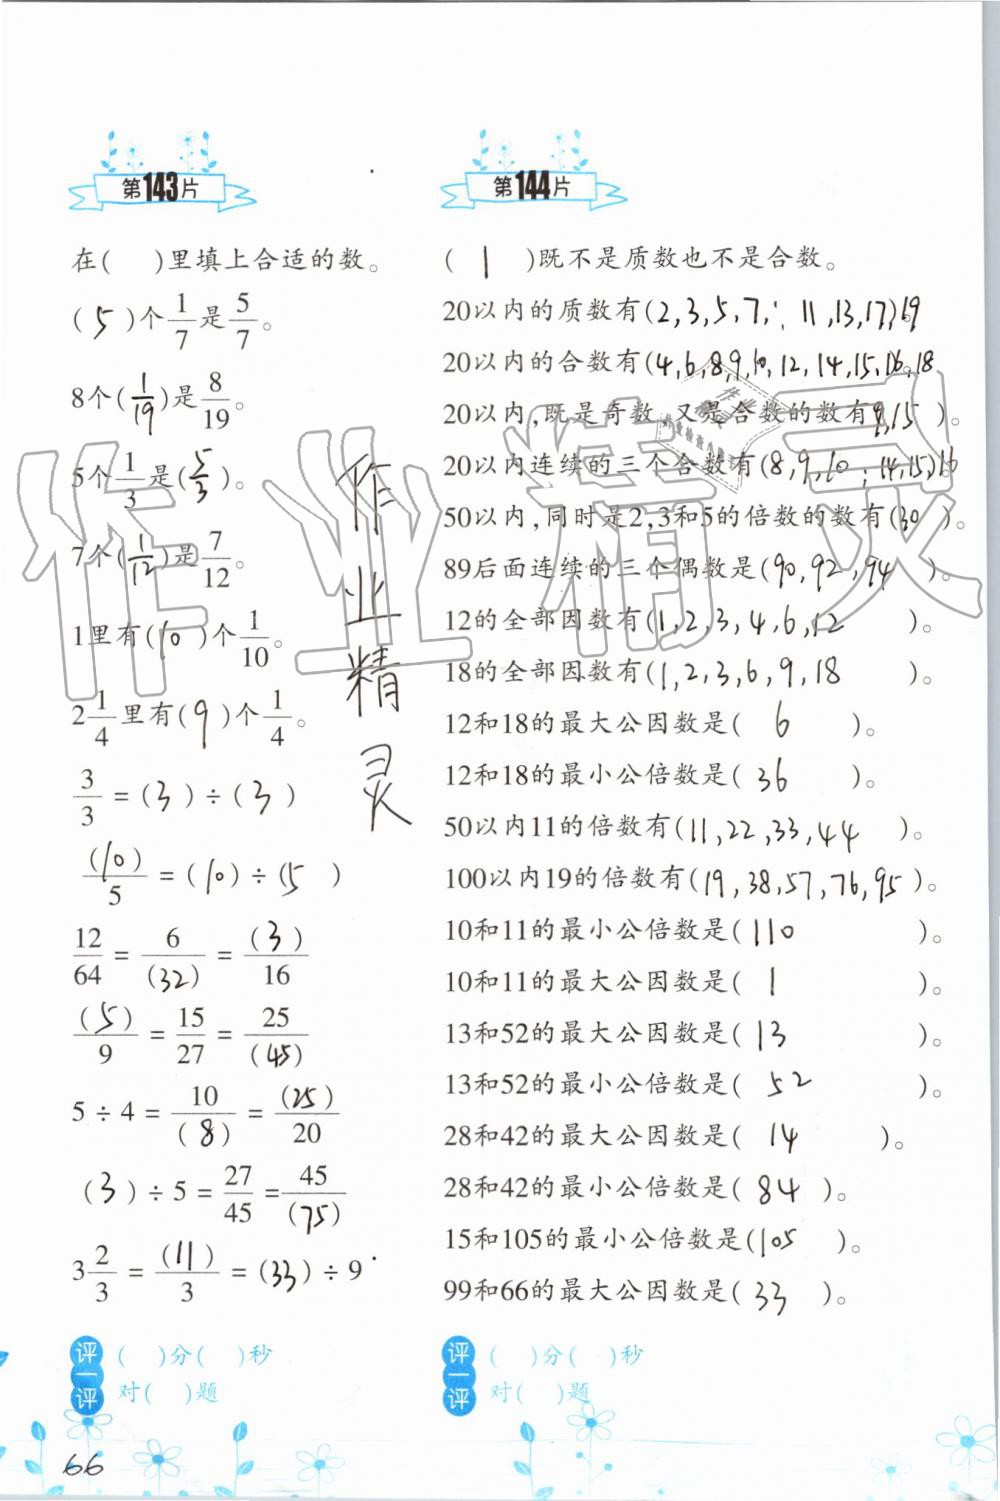 第143片
在( )里填上合适的数。
(5)个1/7是5/7。
8个(1/19)是8/19。
5个1/3是(5/3)。
7个(1/12)是7/12。
1里有(10)个1/10。
2 1/4里有(9)个1/4。
3/3=(3)÷(3)
(10)/5=(10)÷(5)
12/64=6/(32)=(3)/16
(5)/9=15/27=25/(45)
5÷4=10/(8)=(25)/20
(3)÷5=27/45=45/(75)
3 2/3=(11)/3=(33)÷9
评一评
( )分( )秒
对( )题
66
第144片
(1)既不是质数也不是合数。
20以内的质数有(2,3,5,7,11,13,17)19
20以内的合数有(4,6,8,9,10,12,14,15,16,18
20以内,既是奇数,又是合数的数有(9,15)。
20以内连续的三个合数有(8,9,10;14,15)16
50以内,同时是2,3和5的倍数的数有(30)。
89后面连续的三个偶数是(90,92,94)。
12的全部因数有(1,2,3,4,6,12)。
18的全部因数有(1,2,3,6,9,18)。
12和18的最大公因数是(6)。
12和18的最小公倍数是(36)。
50以内11的倍数有(11,22,33,44)。
100以内19的倍数有(19,38,57,76,95)。
10和11的最小公倍数是(110)。
10和11的最大公因数是(1)。
13和52的最大公因数是(13)。
13和52的最小公倍数是(52)。
28和42的最大公因数是(14)。
28和42的最小公倍数是(84)。
15和105的最小公倍数是(105)。
99和66的最大公因数是(33)。
评一评
( )分( )秒
对( )题
作业精灵
作业精灵